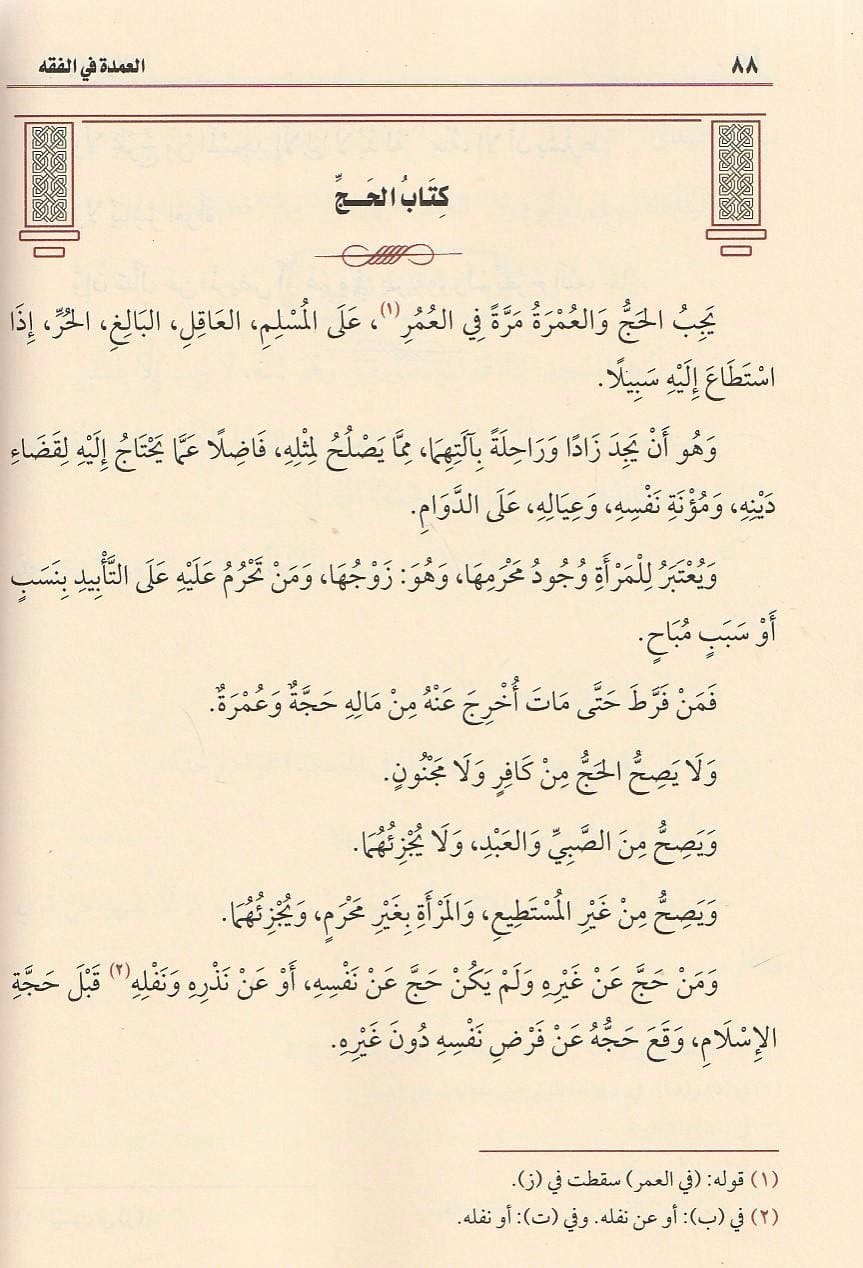 ٨٨
العمدة في الفقه
كِتَابُ الحَجِّ
يَجِبُ الحَجُّ وَالعُمْرَةُ مَرَّةً فِي العُمُرِ(١)، عَلَى المُسْلِمِ، العَاقِلِ، البَالِغِ، الحُرِّ، إِذَا
اسْتَطَاعَ إِلَيْهِ سَبِيلًا.
وَهُو أَنْ يَجِدَ زَادًا وَرَاحِلَةً بِآلَتِهِمَا، مِمَّا يَصْلُحُ لِمِثْلِهِ، فَاضِلًا عَمَّا يَحْتَاجُ إِلَيْهِ لِقَضَاءِ
دَيْنِهِ، وَمُؤْنَةِ نَفْسِهِ، وَعِيَالِهِ، عَلَى الدَّوَامِ.
وَيُعْتَبَرُ لِلْمَرْأَةِ وُجُودُ مَحْرَمِهَا، وَهُوَ: زَوْجُهَا، وَمَنْ تَحْرُمُ عَلَيْهِ عَلَى التَّأْبِيدِ بِنَسَبٍ
أَوْ سَبَبٍ مُبَاحٍ.
فَمَنْ فَرَّطَ حَتَّى مَاتَ أُخْرِجَ عَنْهُ مِنْ مَالِهِ حَجَّةٌ وَعُمْرَةٌ.
وَلَا يَصِحُّ الحَجُّ مِنْ كَافِرٍ وَلَا مَجْنُونٍ.
وَيَصِحُّ مِنَ الصَّبِيِّ وَالعَبْدِ، وَلَا يُجْزِئُهُمَا.
وَيَصِحُّ مِنْ غَيْرِ المُسْتَطِيعِ، وَالمَرْأَةِ بِغَيْرِ مَحْرَمٍ، وَيُجْزِئُهُمَا.
وَمَنْ حَجَّ عَنْ غَيْرِهِ وَلَمْ يَكُنْ حَجَّ عَنْ نَفْسِهِ، أَوْ عَنْ نَذْرِهِ وَنَفْلِهِ(٢) قَبْلَ حَجَّةِ
الإِسْلَامِ، وَقَعَ حَجُّهُ عَنْ فَرْضِ نَفْسِهِ دُونَ غَيْرِهِ.
(١) قوله: (في العمر) سقطت في (ز).
(٢) في (ب): أو عن نفله. وفي (ت): أو نفله.